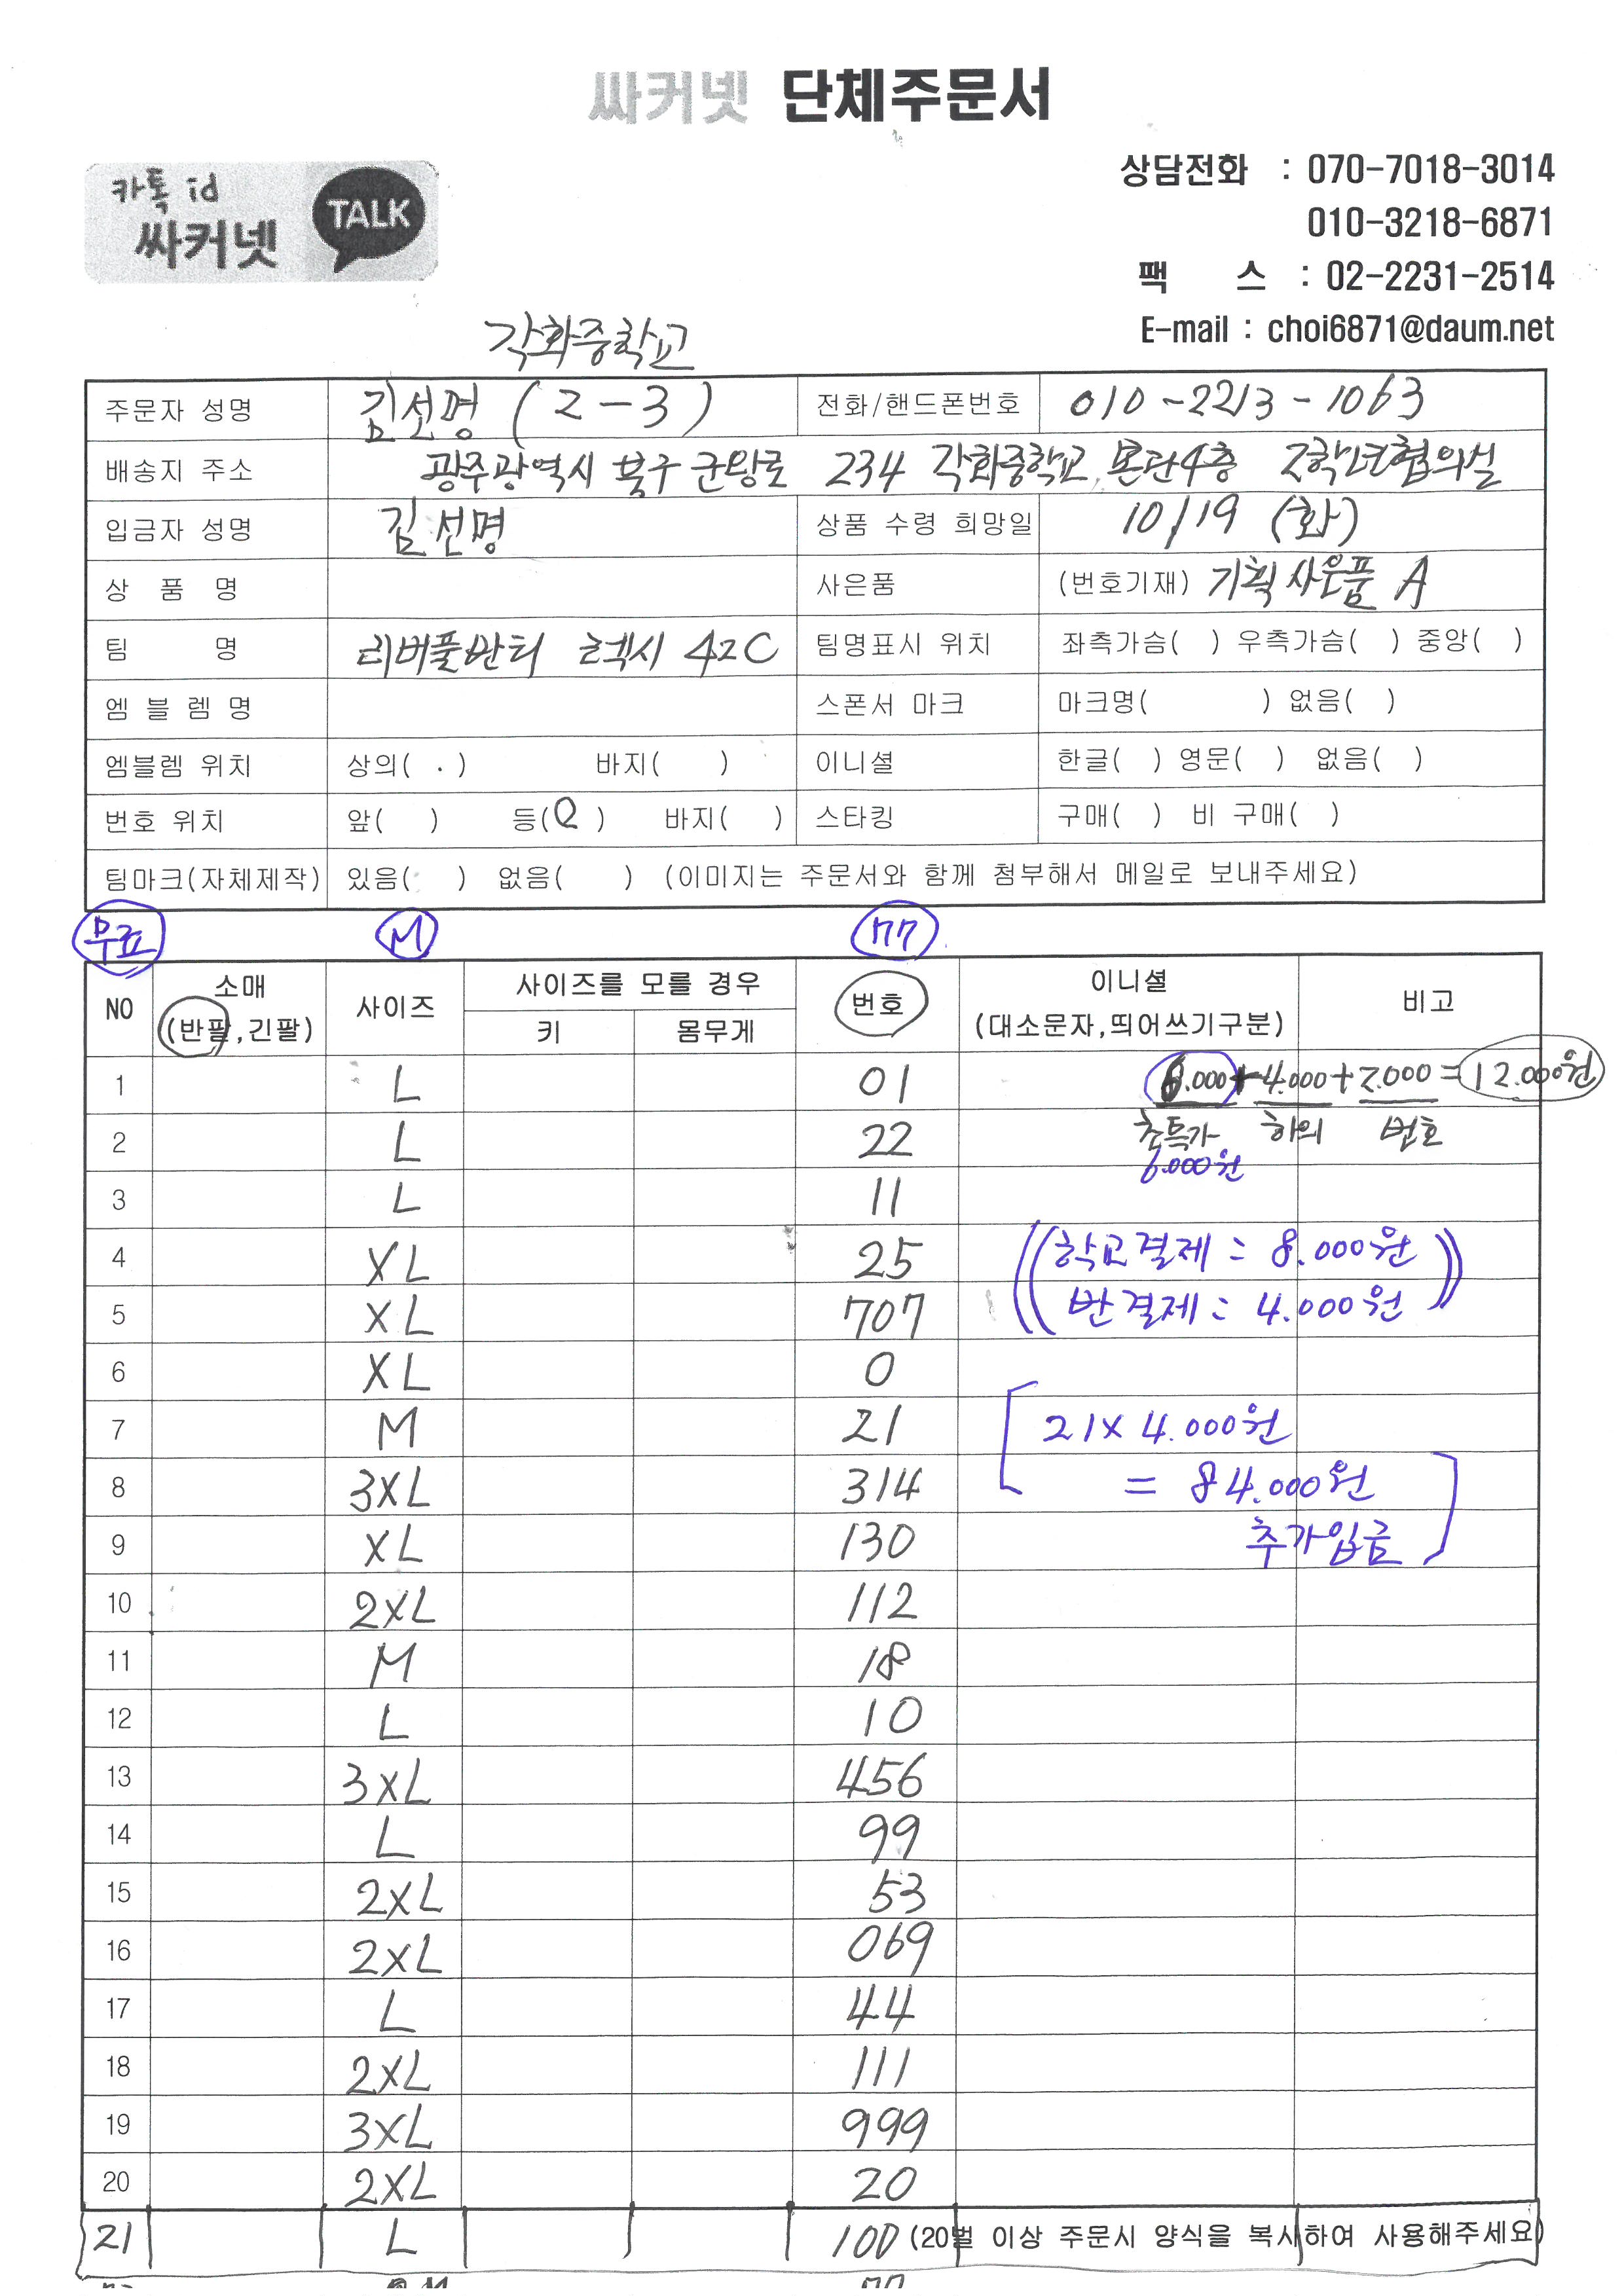 싸커넷 단체주문서
카톡 id
싸커넷
TALK
상담전화 : 070-7018-3014
010-3218-6871
팩 스 : 02-2231-2514
E-mail : choi6871@daum.net
각화중학교
주문자 성명 김선명 (2-3) 전화/핸드폰번호 010-2213-1063
배송지 주소 광주광역시 북구 군왕로 234 각화중학교, 본관4층 2학년협의실
입금자 성명 김선명 상품 수령 희망일 10/19 (화)
상 품 명 사은품 (번호기재) 기획사은품 A
팀 명 리버풀반티 렉시 42C 팀명표시 위치 좌측가슴( ) 우측가슴( ) 중앙( )
엠 블 렘 명 스폰서 마크 마크명( ) 없음( )
엠블렘 위치 상의( ) 바지( ) 이니셜 한글( ) 영문( ) 없음( )
번호 위치 앞( ) 등(O) 바지( ) 스타킹 구매( ) 비 구매( )
팀마크(자체제작) 있음( ) 없음( ) (이미지는 주문서와 함께 첨부해서 메일로 보내주세요)
무료 M 77
NO 소매 (반팔,긴팔) 사이즈 사이즈를 모를 경우 키 몸무게 번호 이니셜 (대소문자,띄어쓰기구분) 비고
1 L 01 6.000+4.000+2.000=12.000원
2 L 22 초특가 하의 번호
6.000원
3 L 11
4 XL 25 학교결제 = 8.000원
5 XL 707 반결제 = 4.000원
6 XL 0
7 M 21 21x4.000원
8 3XL 314 = 84.000원
9 XL 130 추가입금
10 2XL 112
11 M 18
12 L 10
13 3XL 456
14 L 99
15 2XL 53
16 2XL 069
17 L 44
18 2XL 111
19 3XL 999
20 2XL 20
21 L 100 (20벌 이상 주문시 양식을 복사하여 사용해주세요)